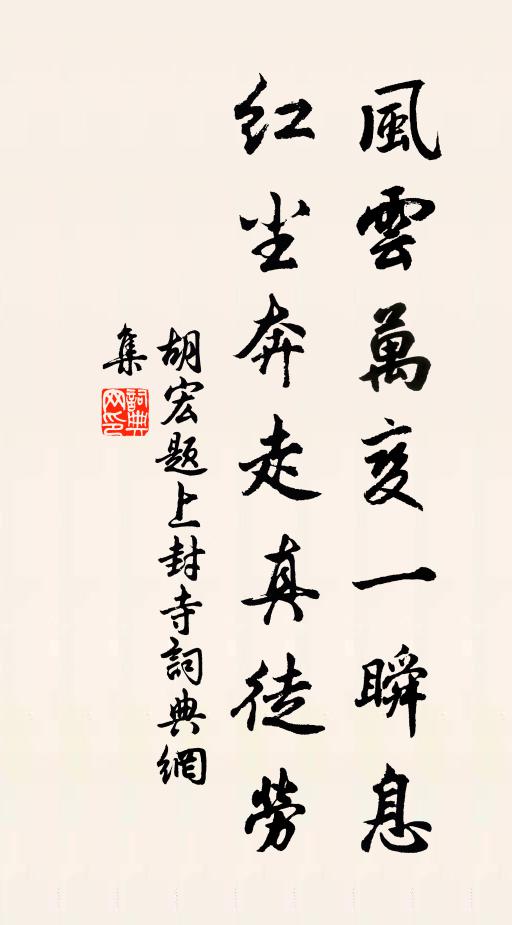 風雲萬变一瞬息
红尘奔走真徒勞
胡宏题上封寺詞典網
集
詞典
网印